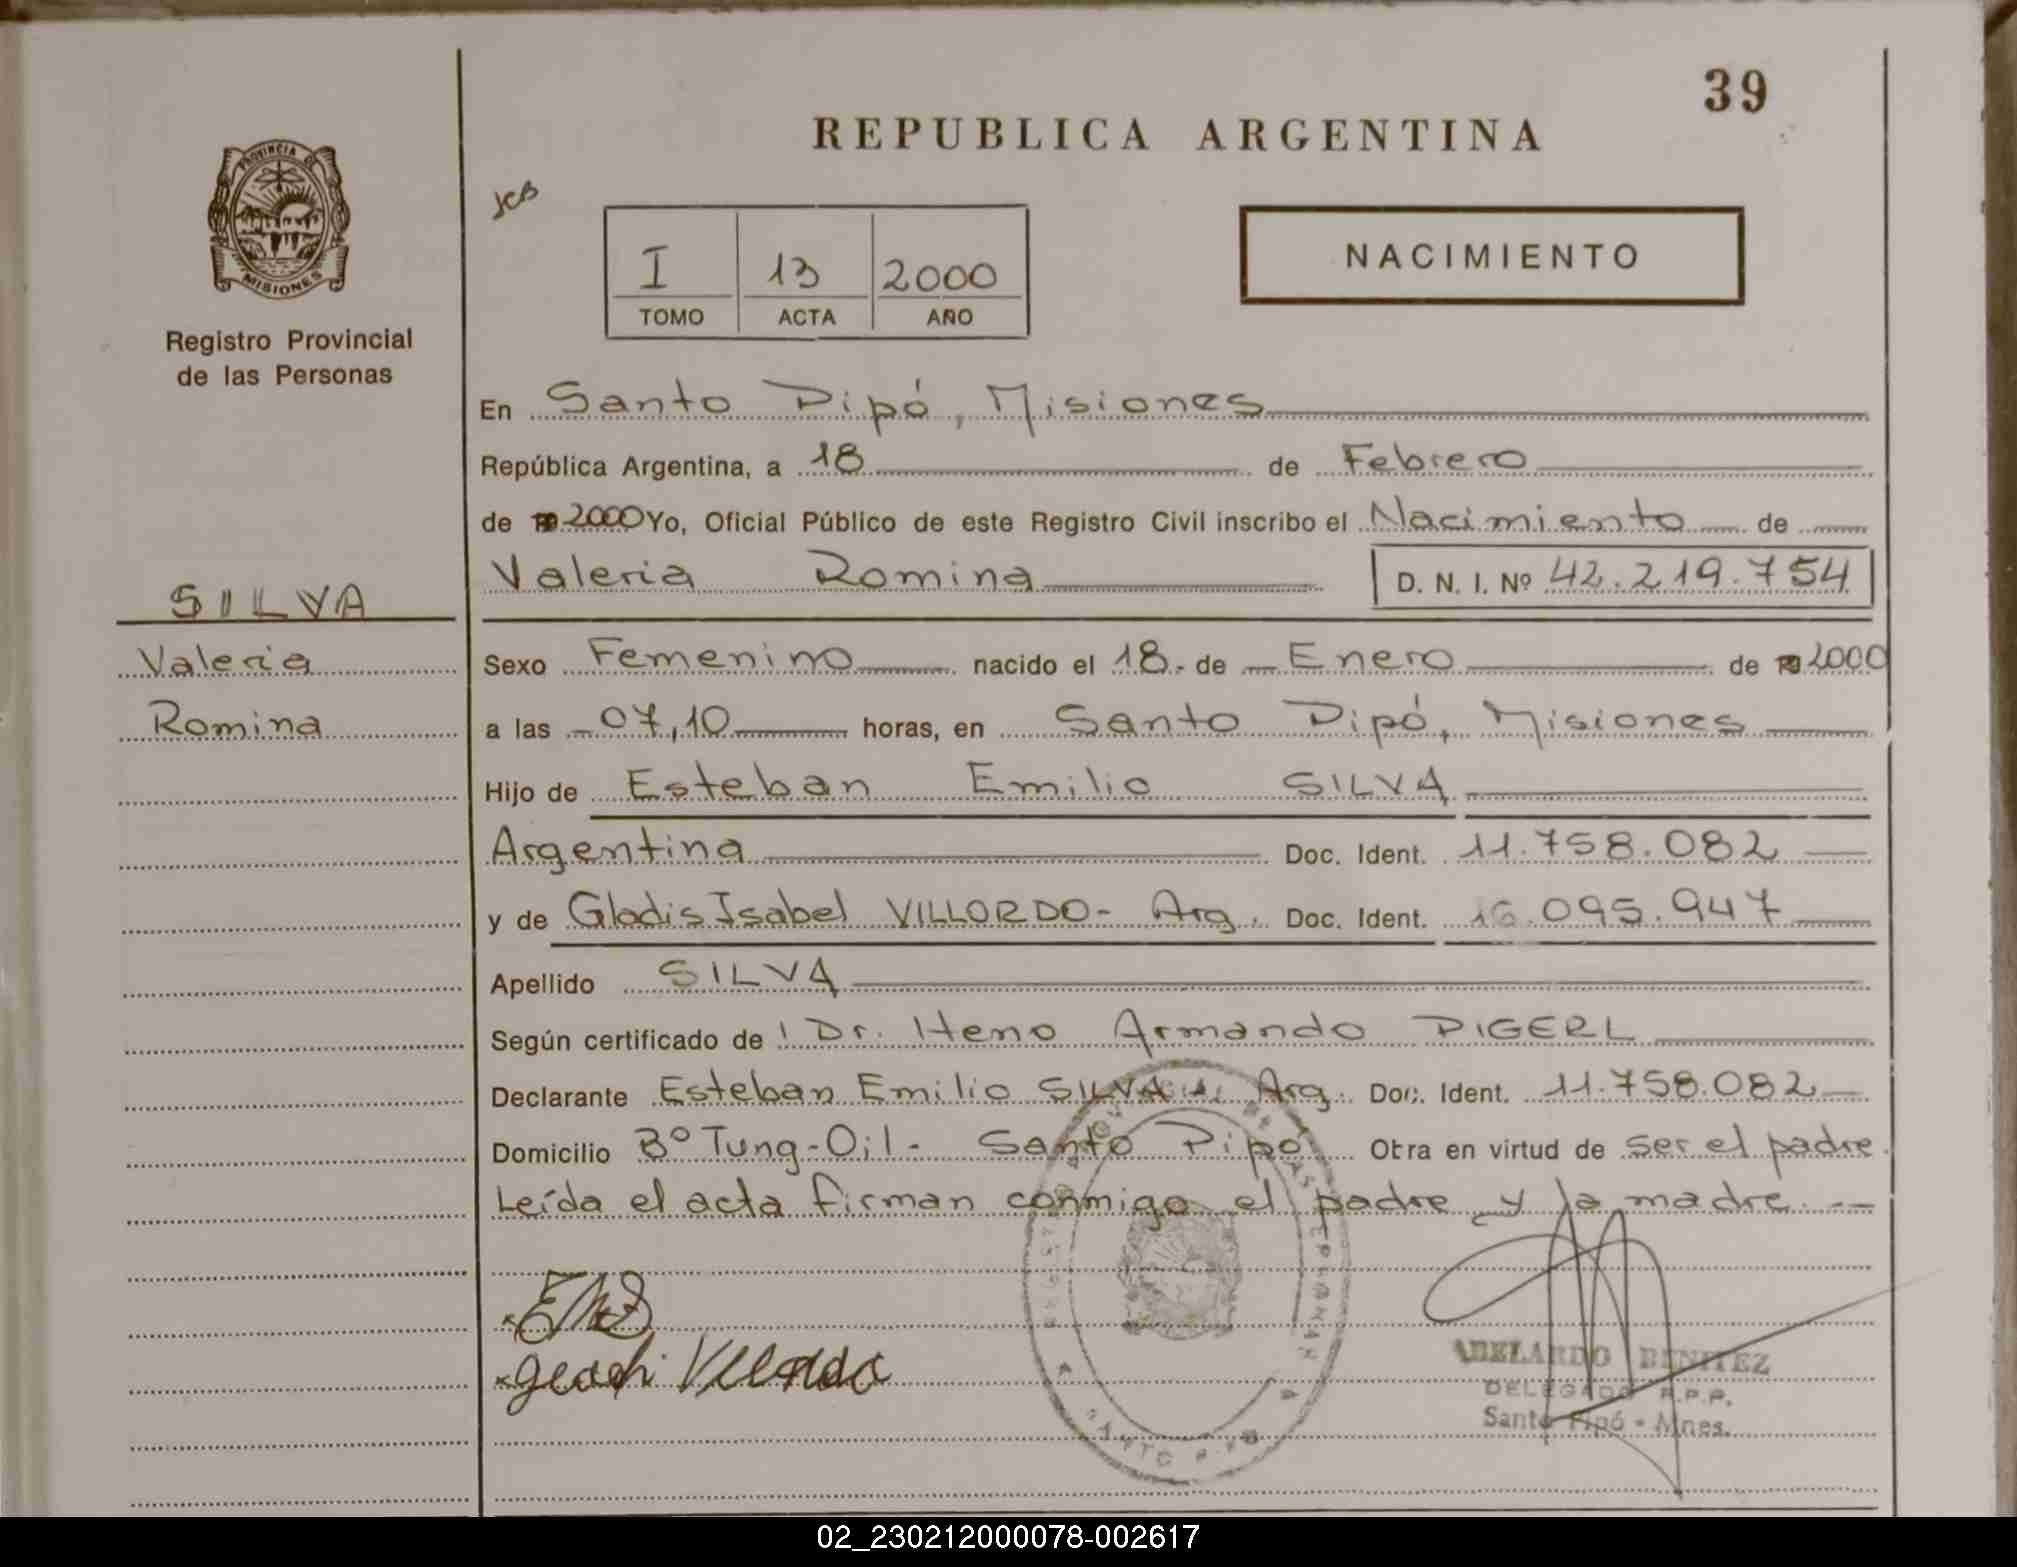 39
REPUBLICA ARGENTINA
JCB
PROVINCIA DE
MISIONES
Registro Provincial
de las Personas
I 13 2000
TOMO ACTA AÑO
NACIMIENTO
En Santo Pipó, Misiones
República Argentina, a 18 de Febrero
de 2000 Yo, Oficial Público de este Registro Civil inscribo el Nacimiento de
Valeria Romina D. N. I. Nº 42.219.754
SILVA
Valeria
Romina
Sexo Femenino nacido el 18.- de Enero de 2000
a las 07,10 horas, en Santo Pipó, Misiones
Hijo de Esteban Emilio SILVA
Argentina Doc. Ident. 11.758.082
y de Gladis Isabel VILLORDO- Arg. Doc. Ident. 16.095.947
Apellido SILVA
Según certificado de l Dr. Heno Armando PIGERL
Declarante Esteban Emilio SILVA Arg. Doc. Ident. 11.758.082
Domicilio Bº Tung-Oil- Santo Pipó Otra en virtud de ser el padre.
Leída el acta firman conmigo el padre y la madre.
ABELARDO BENITEZ
DELEGADO R.P.P.
Santo Pipó - Mnes.
02_230212000078-002617